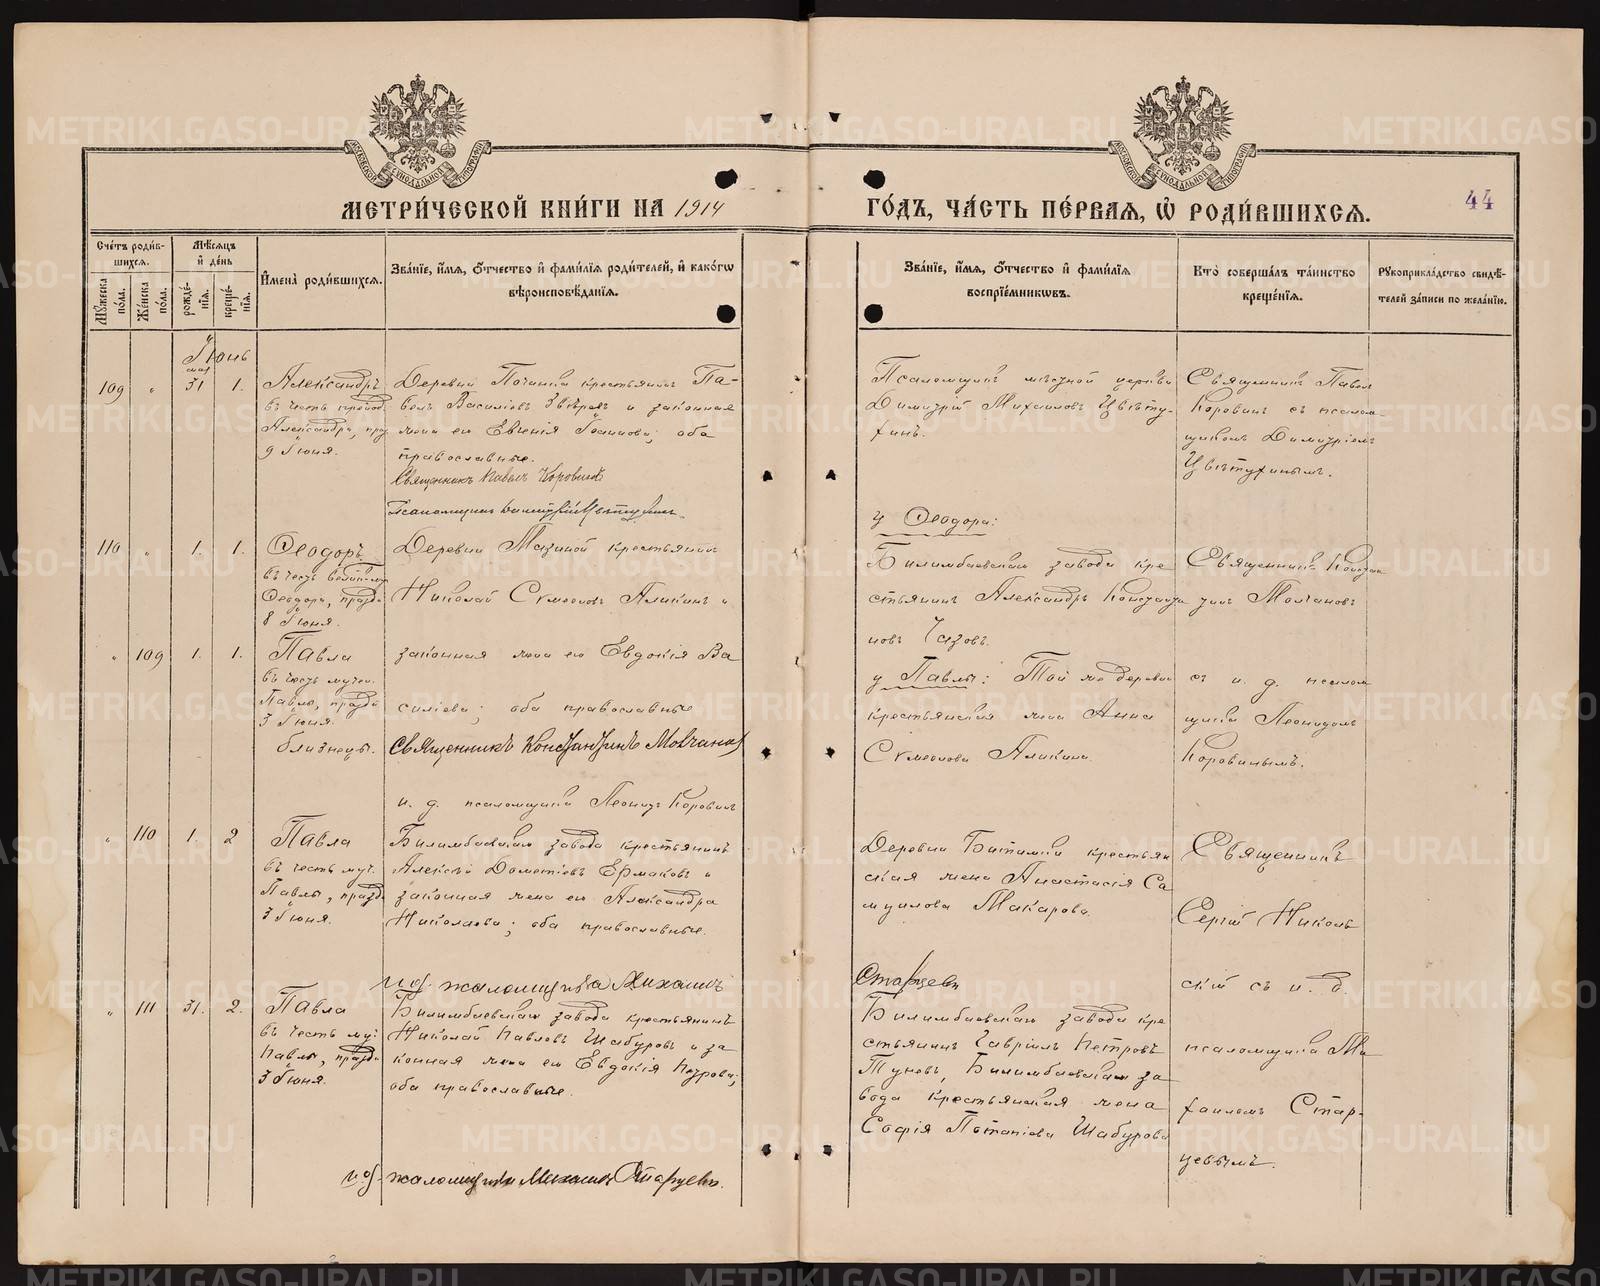 МЕТРИ́ЧЕСКОЙ КНИ́ГИ НА 1914
ГО́ДЪ, ЧА́СТЬ ПЕ́РВАѦ, Ѡ҆ РОДИ́ВШИХСѦ.
44
Сче́тъ роди́в-
шихсѧ.
Мꙋ́жеска по́ла.
Же́нска по́ла.
Мѣ́сѧцъ
и҆ де́нь
рожде́-
нїѧ.
креще́-
нїѧ.
И҆мена̀ роди́вшихсѧ.
Зва́нїе, и҆́мѧ, ѻ҆́тчество и҆ фами́лїѧ роди́телей, и҆ како́гѡ
вѣроисповѣ́данїѧ.
Зва́нїе, и҆́мѧ, ѻ҆́тчество и҆ фами́лїѧ
воспрїе́мникѡвъ.
Кто̀ соверша́лъ та́инство
креще́нїѧ.
Рꙋкоприкла́дство свидѣ́-
телей за́писи по жела́нїю.
Іюнь
мая
109 " 31 1.
Александръ
въ честь препод.
Александра, пра
9 Іюня.
Деревни Починка крестьянинъ Па-
велъ Василіевъ Звѣревъ и законная
жена его Евгенія Іоаннова; оба
православные.
Священникъ Павелъ Коровинъ
Псаломщикъ Димитрій Цвѣтухинъ
Псаломщикъ мѣстной церкви
Димитрій Михаиловъ Цвѣту-
хинъ.
Священникъ Павелъ
Коровинъ съ псалом
щикомъ Димитріемъ
Цвѣтухинымъ.
110 " 1. 1.
Ѳеодоръ
въ честь великом.
Ѳеодора, празд.
8 Іюня.
Деревни Мазиной крестьянинъ
Николай Сѵмеоновъ Аликинъ и
у Ѳеодора:
Билимбаевскаго завода кре
стьянинъ Александръ Констант
новъ Чазовъ.
Священникъ Констан
тинъ Молчановъ
" 109 1. 1.
Павла
въ честь мучен.
Павлы, празд.
3 Іюня.
близнецы.
законная жена его Евдокія Ва
силіева; оба православные
Священникъ Константинъ Молчановъ
и. д. псаломщика Леонидъ Коровинъ
у Павлы: Той же деревни
крестьянская жена Анна
Сѵмеонова Аликина
съ и. д. псалом
щика Леонидомъ
Коровинымъ.
" 110 1. 2
Павла
въ честь муч.
Павлы, празд.
3 Іюня.
Билимбаевскаго завода крестьянинъ
Алексѣй Дометіевъ Ермаковъ и
законная жена его Александра
Николаева; оба православные.
и.д. псаломщика Михаилъ
Старцевъ
Деревни Битимки крестьян
ская жена Анастасія Са
муилова Макарова.
Священникъ
Сергій Николь
скій съ и. д.
псаломщика Ми
хаиломъ Стар-
цевымъ.
" 111 31. 2.
Павла
въ честь му.
Павлы, празд
3 Іюня.
Билимбаевскаго завода крестьянинъ
Николай Павловъ Шабуровъ и за
конная жена его Евдокія Петрова;
оба православные.
и.д. псаломщика Михаилъ Старцевъ.
Билимбаевскаго завода кре
стьянинъ Гавріилъ Петровъ
Туновъ, Билимбаевскаго за
вода крестьянская жена
Софія Потапіева Шабурова